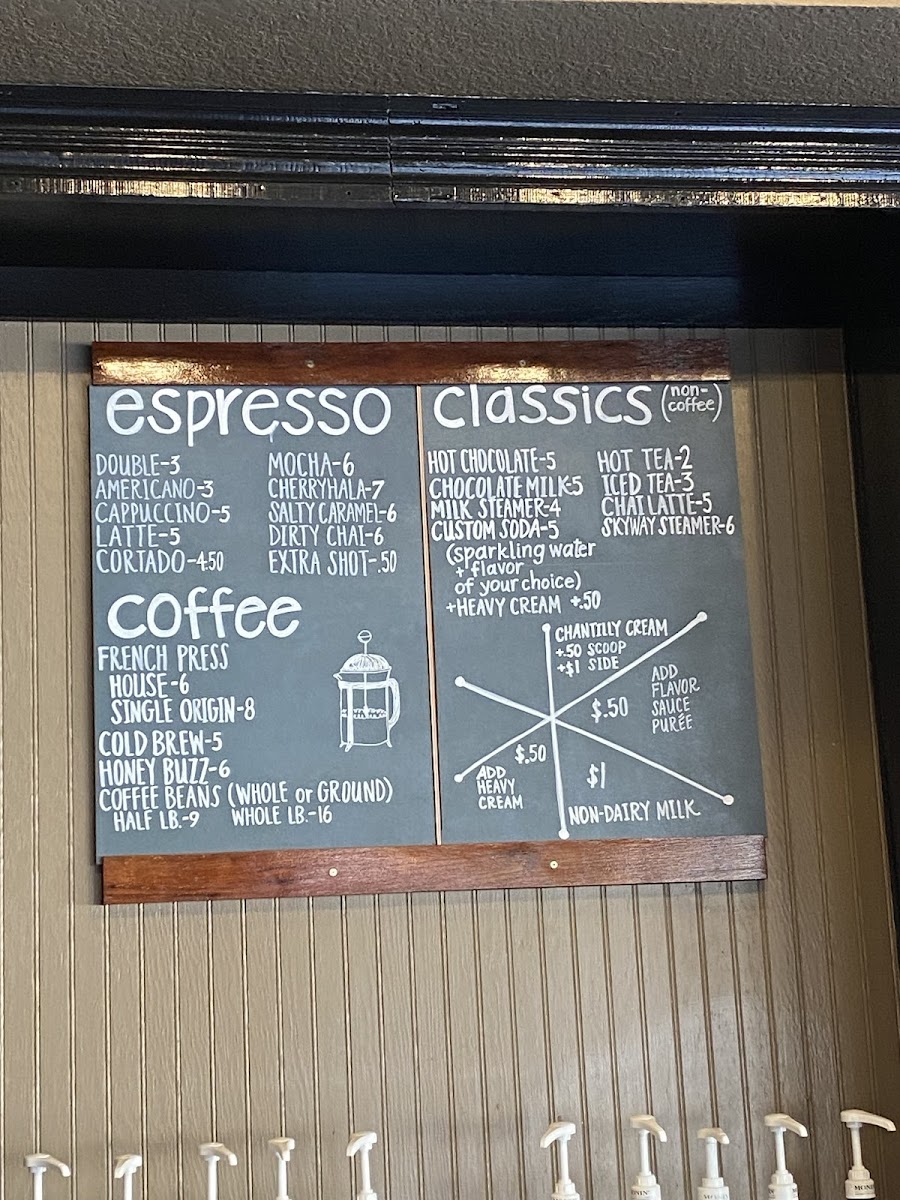 espresso
DOUBLE-3
AMERICANO-3
CAPPUCCINO-5
LATTE-5
CORTADO-4.50
MOCHA-6
CHERRYHALA-7
SALTY CARAMEL-6
DIRTY CHAI-6
EXTRA SHOT-.50
coffee
FRENCH PRESS
HOUSE-6
SINGLE ORIGIN-8
COLD BREW-5
HONEY BUZZ-6
COFFEE BEANS (WHOLE or GROUND)
HALF LB.-9 WHOLE LB.-16
classics (non-
coffee)
HOT CHOCOLATE-5
CHOCOLATE MILK-5
MILK STEAMER-4
CUSTOM SODA-5
(sparkling water
+ flavor
of your choice)
+HEAVY CREAM +.50
HOT TEA-2
ICED TEA-3
CHAI LATTE-5
SKYWAY STEAMER-6
CHANTILLY CREAM
+.50 SCOOP
+$1 SIDE
$.50
ADD
FLAVOR
SAUCE
PURÉE
$.50
ADD
HEAVY
CREAM
$1
NON-DAIRY MILK